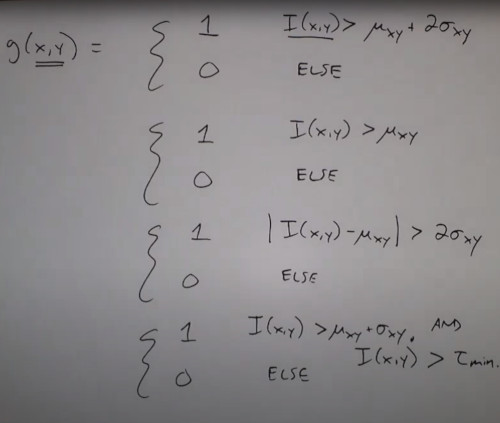 g(x,y) = { 1 I(x,y) > μxy + 2σxy
0 ELSE
{ 1 I(x,y) > μxy
0 ELSE
{ 1 |I(x,y) - μxy| > 2σxy
0 ELSE
{ 1 I(x,y) > μxy + σxy. AND
0 ELSE I(x,y) > τmin.